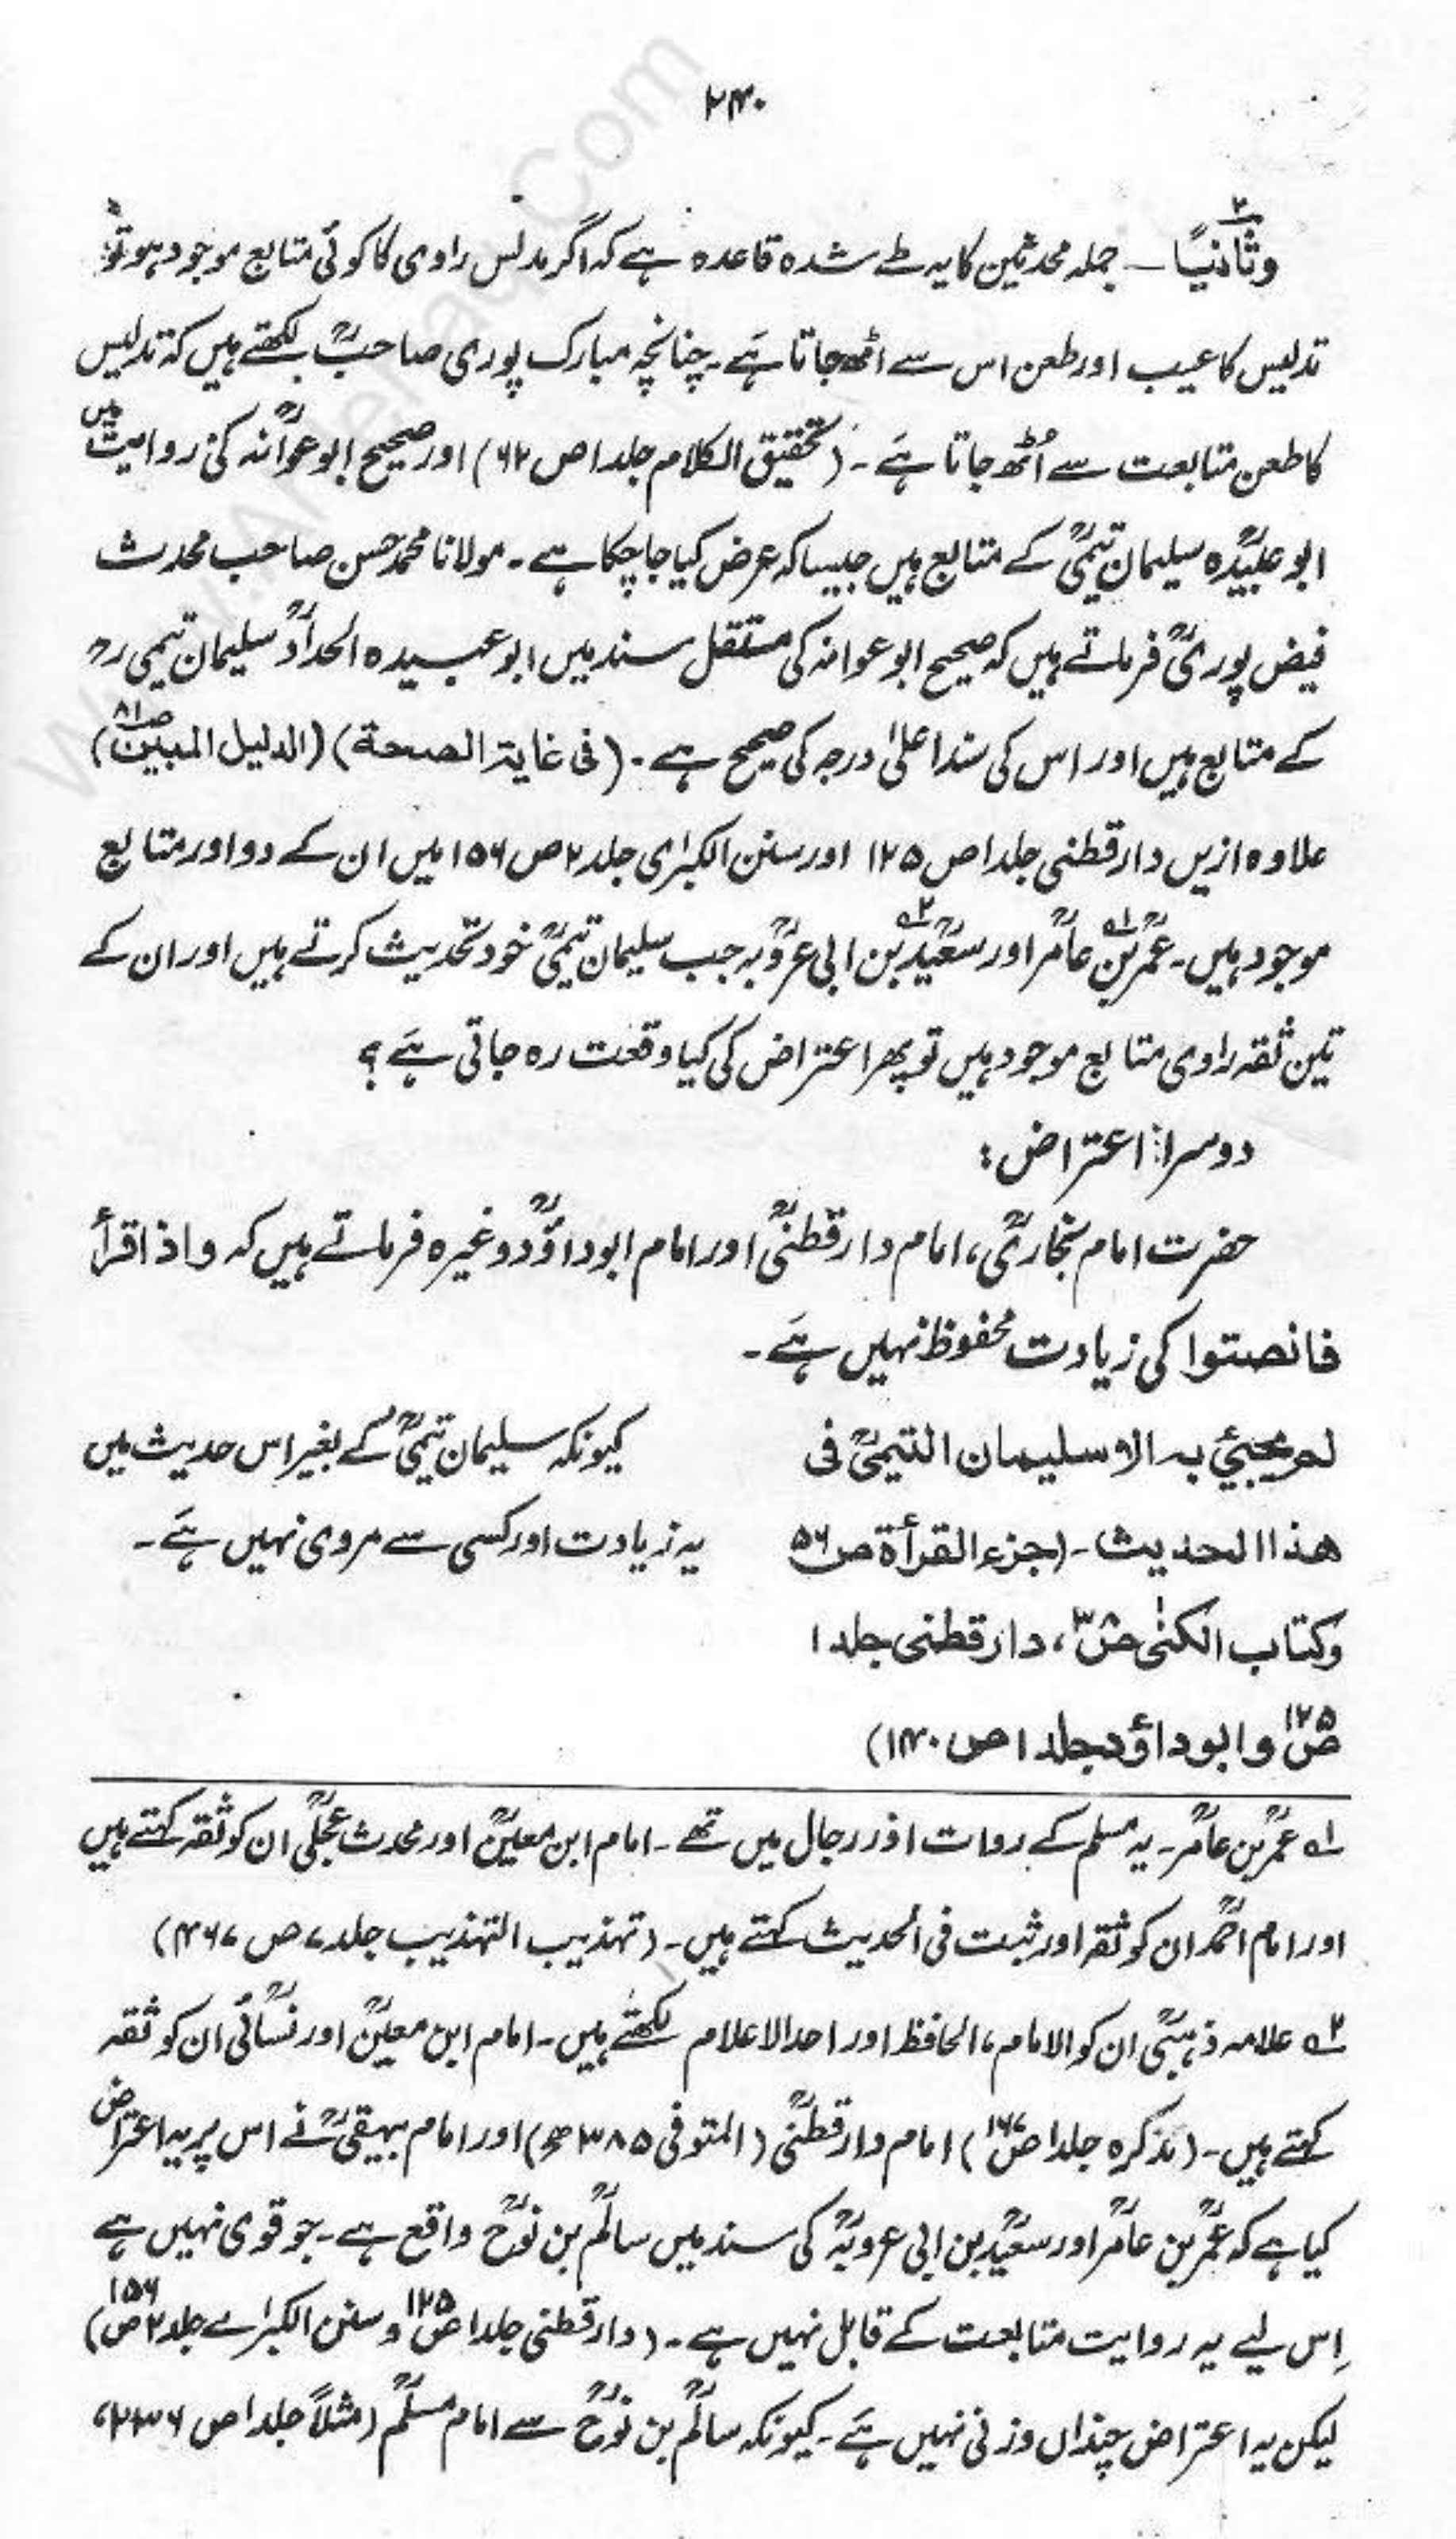 ۲۴۰
وثانیاً ۲ ـ جملہ محدثین کا یہ طے شدہ قاعدہ ہے کہ اگر مدلس راوی کا کوئی متابع موجود ہو تو
تدلیس کا عیب اور طعن اس سے اٹھ جاتا ہے۔ چنانچہ مبارک پوری صاحبؒ لکھتے ہیں کہ تدلیس
کا طعن متابعت سے اُٹھ جاتا ہے۔ (تحقیق الکلام جلد ۱ ص ۶۲) اور صحیح ابوعوانہؒ کی روایت میں
ابو عبیدہؒ سلیمان تیمیؒ کے متابع ہیں جیسا کہ عرض کیا جا چکا ہے۔ مولانا محمد حسن صاحب محدث
فیض پوریؒ فرماتے ہیں کہ صحیح ابو عوانہ کی مستقل سند میں ابو عبیدہ الحدادؒ سلیمان تیمی رح
کے متابع ہیں اور اس کی سند اعلیٰ درجہ کی صحیح ہے۔ (فی غایۃ الصحۃ) (الدلیل المبین ص ۸۱)
علاوہ ازیں دارقطنی جلد ۱ ص ۱۲۵ اور سنن الکبرٰی جلد ۲ ص ۱۵۶ میں ان کے دو اور متابع
موجود ہیں۔ عمرؒ بن ۱ عامرؒ اور سعیدؒ ۲ بن ابی عروبہؒ جب سلیمان تیمیؒ خود تحدیث کرتے ہیں اور ان کے
تین ثقہ راوی متابع موجود ہیں تو پھر اعتراض کی کیا وقعت رہ جاتی ہے؟
دوسرا اعتراض:
حضرت امام بخاریؒ، امام دارقطنیؒ اور امام ابوداؤدؒ وغیرہ فرماتے ہیں کہ واذا قرأ
فانصتوا کی زیادت محفوظ نہیں ہے۔
لم یجیٔ بہ الا سلیمان التیمیؒ فی
کیونکہ سلیمان تیمیؒ کے بغیر اس حدیث میں
ھذا الحدیث۔ (جزء القرأۃ ص ۵۶
یہ زیادت اور کسی سے مروی نہیں ہے۔
وکتاب الکنٰی ص ۳۸، دارقطنی جلد ۱
ص ۱۲۵ و ابوداؤد جلد ۱ ص ۱۴۰)
۱ عمرؒ بن عامرؒ۔ یہ مسلم کے روات اور رجال میں تھے۔ امام ابن معینؒ اور محدث عجلیؒ ان کو ثقہ کہتے ہیں
اور امام احمدؒ ان کو ثقہ اور ثبت فی الحدیث کہتے ہیں۔ (تہذیب التہذیب جلد ۷ ص ۴۶۷)
۲ علامہ ذہبیؒ ان کو الامام، الحافظ اور احد الاعلام لکھتے ہیں۔ امام ابن معینؒ اور نسائیؒ ان کو ثقہ
کہتے ہیں۔ (تذکرہ جلد ۱ ص ۱۶۷) امام دارقطنیؒ (المتوفی ۳۸۵ھ) اور امام بیہقیؒ نے اس پر یہ اعتراض
کیا ہے کہ عمرؒ بن عامرؒ اور سعیدؒ بن ابی عروبہؒ کی سند میں سالمؒ بن نوحؒ واقع ہے۔ جو قوی نہیں ہے
اِس لیے یہ روایت متابعت کے قابل نہیں ہے۔ (دارقطنی جلد ۱ ص ۱۲۵ و سنن الکبرٰے جلد ۲ ص ۱۵۶)
لیکن یہ اعتراض چنداں وزنی نہیں ہے۔ کیونکہ سالمؒ بن نوحؒ سے امام مسلمؒ (مثلاً جلد ۱ ص ۲۳۶،